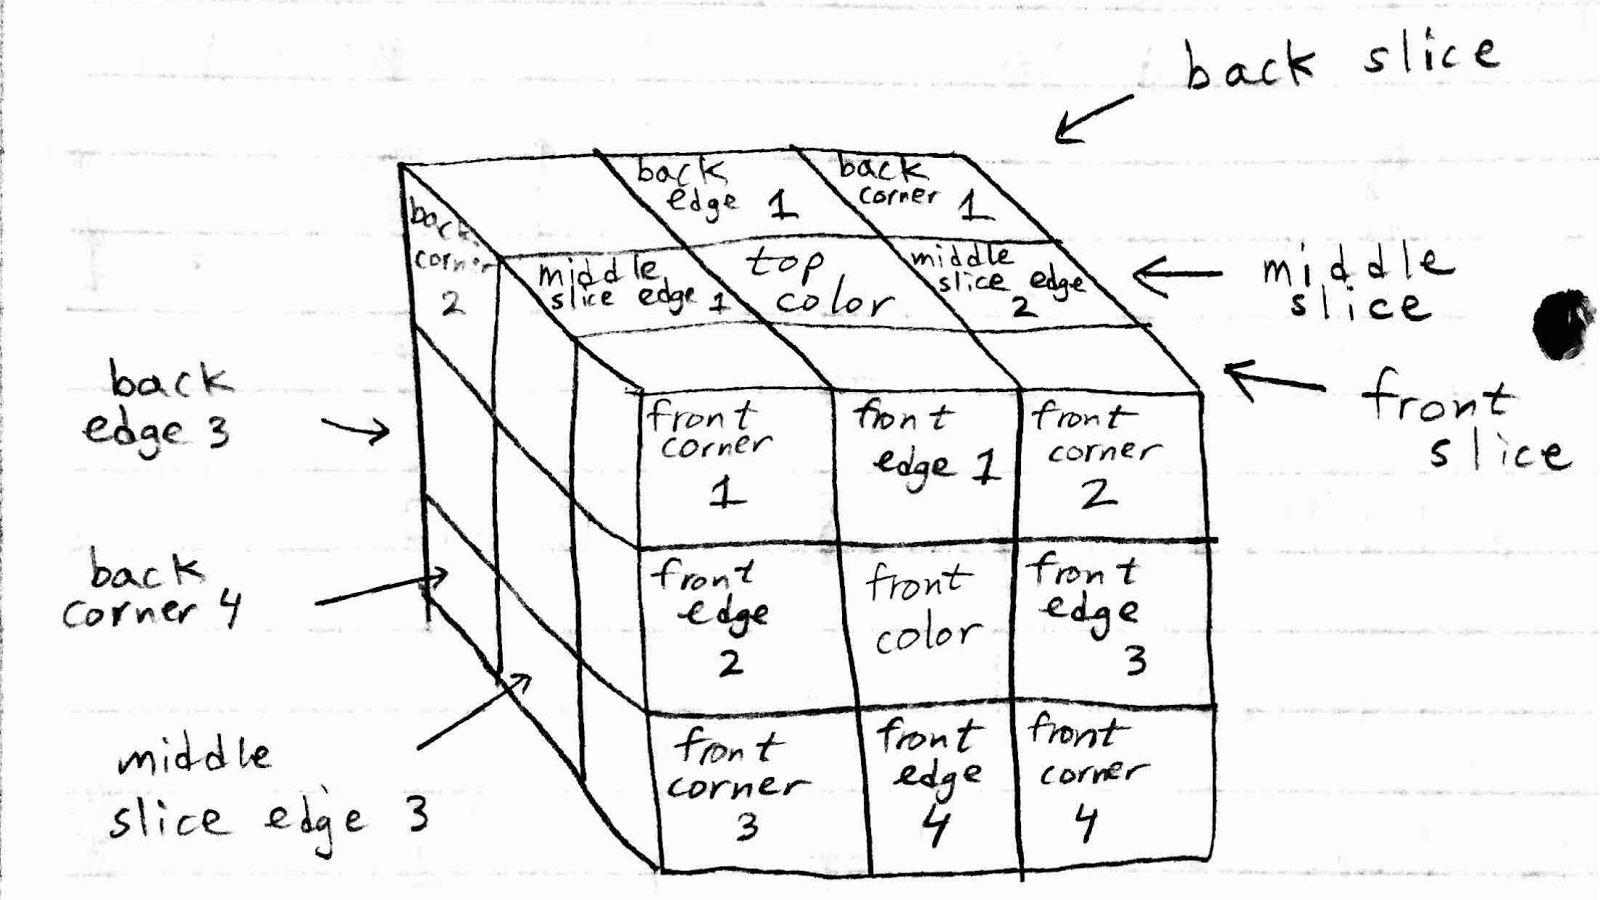 back slice
back
edge 1
back
corner 1
back
corner
2
middle
slice edge 1
top
color
middle
slice edge
2
middle
slice
back
edge 3
front
slice
front
corner
1
front
edge 1
front
corner
2
back
corner 4
front
edge
2
front
color
front
edge
3
middle
slice edge 3
front
corner
3
front
edge
4
front
corner
4